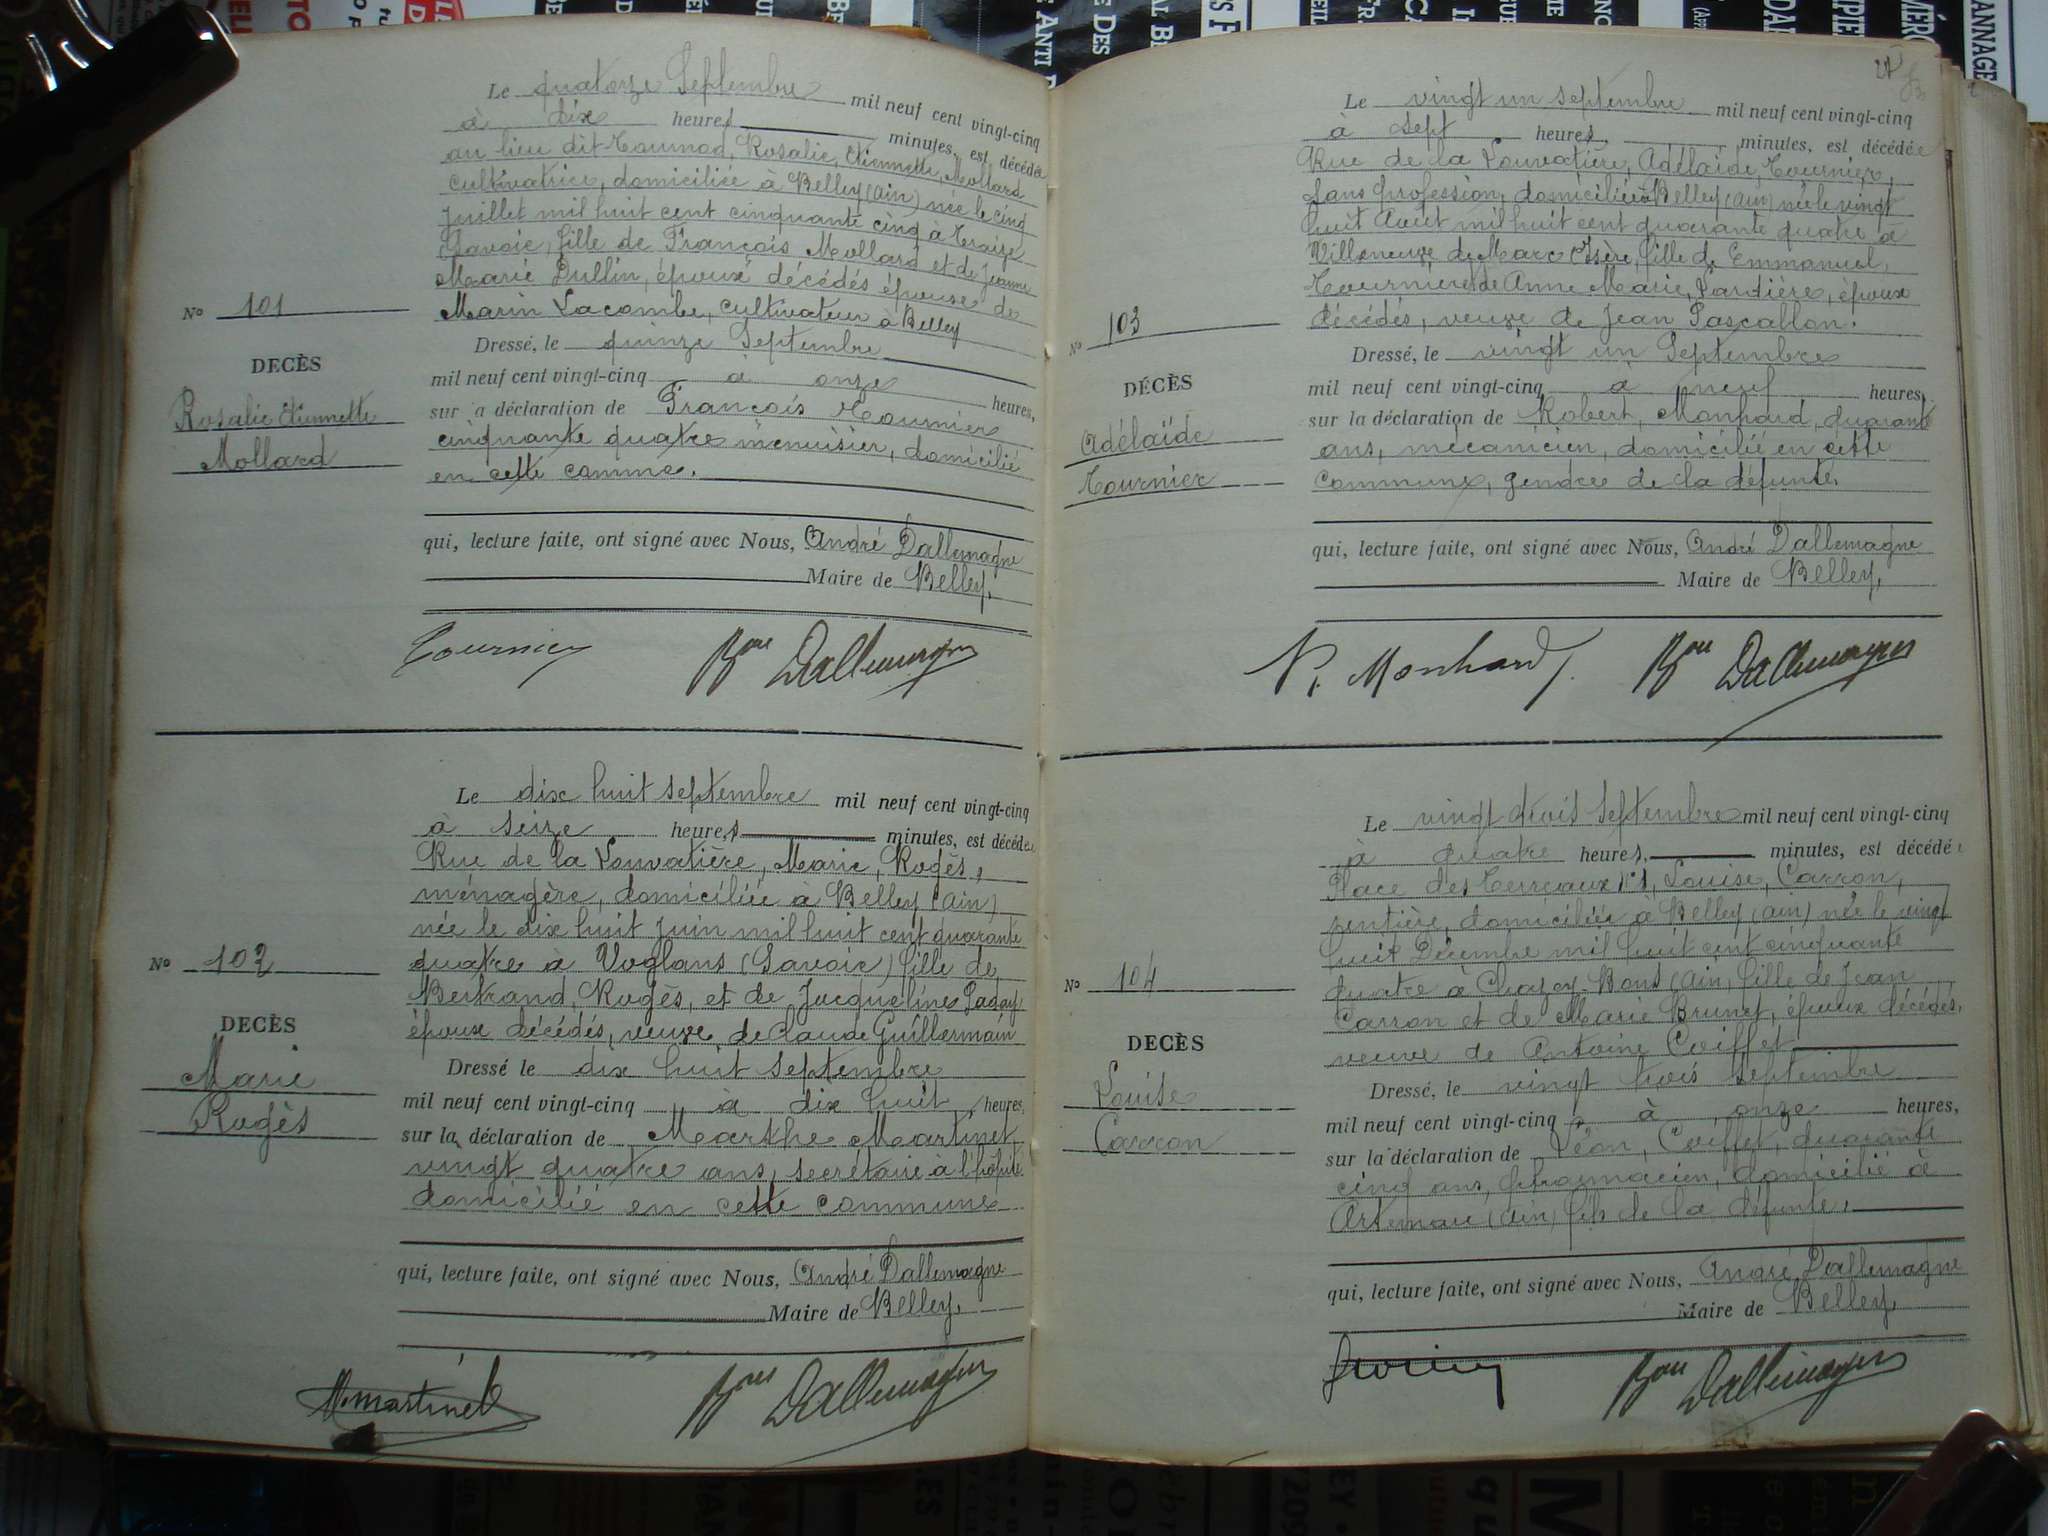 Le quatorze Septembre mil neuf cent vingt-cinq
à dix heures minutes, est décédée
au lieu dit Rosalie, Etiennette, Mollard
cultivatrice, domiciliée à Belley (Ain) née le cinq
Juillet mil huit cent cinquante cinq à Traize
(Savoie), fille de François Mollard et de Jeanne
Marie Pullin, époux décédés épouse de
Marin Lacombe, cultivateur à Belley
No 101
DECÈS
Rosalie Etiennette
Mollard
Dressé, le quinze Septembre
mil neuf cent vingt-cinq à onze heures,
sur a déclaration de François Tournier
cinquante quatre menuisier, domicilié
en cette comme.
qui, lecture faite, ont signé avec Nous, André Dallemagne
Maire de Belley.
Tournier Bon Dallemagne
Le dix huit septembre mil neuf cent vingt-cinq
à seize heures minutes, est décédée
Rue de la Louvatière, Marie, Rogès,
ménagère, domiciliée à Belley (Ain)
née le dix huit Juin mil huit cent quarante
quatre à Voglans (Savoie) fille de
Bertrand, Rogès, et de Jacqueline
époux décédés, veuve, de Claude Guillermain
No 102
DECÈS
Marie
Rogès
Dressé le dix huit septembre
mil neuf cent vingt-cinq à dix huit heures,
sur la déclaration de Marthe Martinet
vingt quatre ans, secrétaire à l'hôpital
domicilié en cette commune
qui, lecture faite, ont signé avec Nous, André Dallemagne
Maire de Belley.
M. Martinet Bon Dallemagne
Le vingt un septembre mil neuf cent vingt-cinq
à sept heures minutes, est décédée
Rue de la Louvatière, Adélaïde, Tournier,
sans profession, domiciliée à Belley (Ain) née le vingt
huit Août mil huit cent quarante quatre à
Villeneuve de Marc (Isère), fille de Emmanuel,
Tournier et de Anne Marie, Pardière, époux
décédés, veuve de Jean Pascallon.
No 103
DÉCÈS
Adélaïde
Tournier
Dressé, le vingt un Septembre
mil neuf cent vingt-cinq à neuf heures,
sur la déclaration de Robert, Monhard, quarante
ans, mécanicien, domicilié en cette
commune, gendre de la défunte.
qui, lecture faite, ont signé avec Nous, André Dallemagne
Maire de Belley,
R. Monhard Bon Dallemagne
Le vingt trois Septembre mil neuf cent vingt-cinq
à quatre heures, minutes, est décédée
Place des Terreaux Louise, Carron,
rentière, domiciliée à Belley (Ain) née le vingt
huit Décembre mil huit cent cinquante
quatre à Chazey-Bons (Ain, fille de Jean
Carron et de Marie Brunet, époux décédés,
veuve de Antoine Coiffet
No 104
DECÈS
Louise
Carron
Dressé, le vingt trois septembre
mil neuf cent vingt-cinq à onze heures,
sur la déclaration de Léon, Coiffet, quarante
cinq ans, pharmacien, domicilié à
Artemare (Ain) fils de la défunte.
qui, lecture faite, ont signé avec Nous, André Dallemagne
Maire de Belley,
Bon Dallemagne